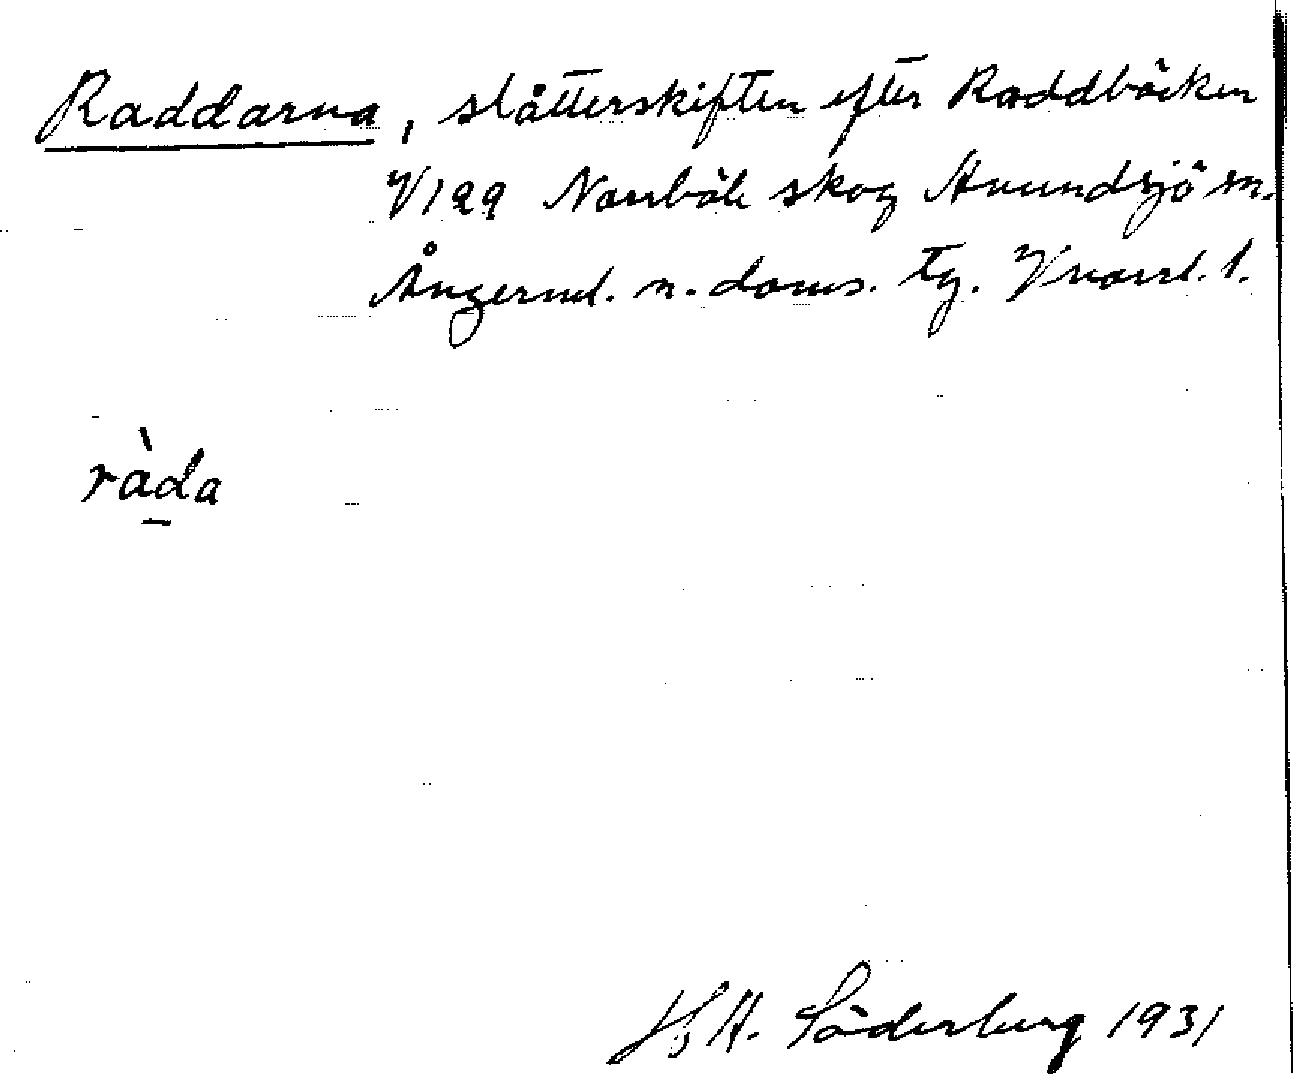 Raddarna, slåtterskiften efter Raddbäcken
V199 Norrböle skog Anundsjö sn.
Ångerml. n. doms. tg. Vnorrl. l.
ràda
Hj A. Söderberg 1931